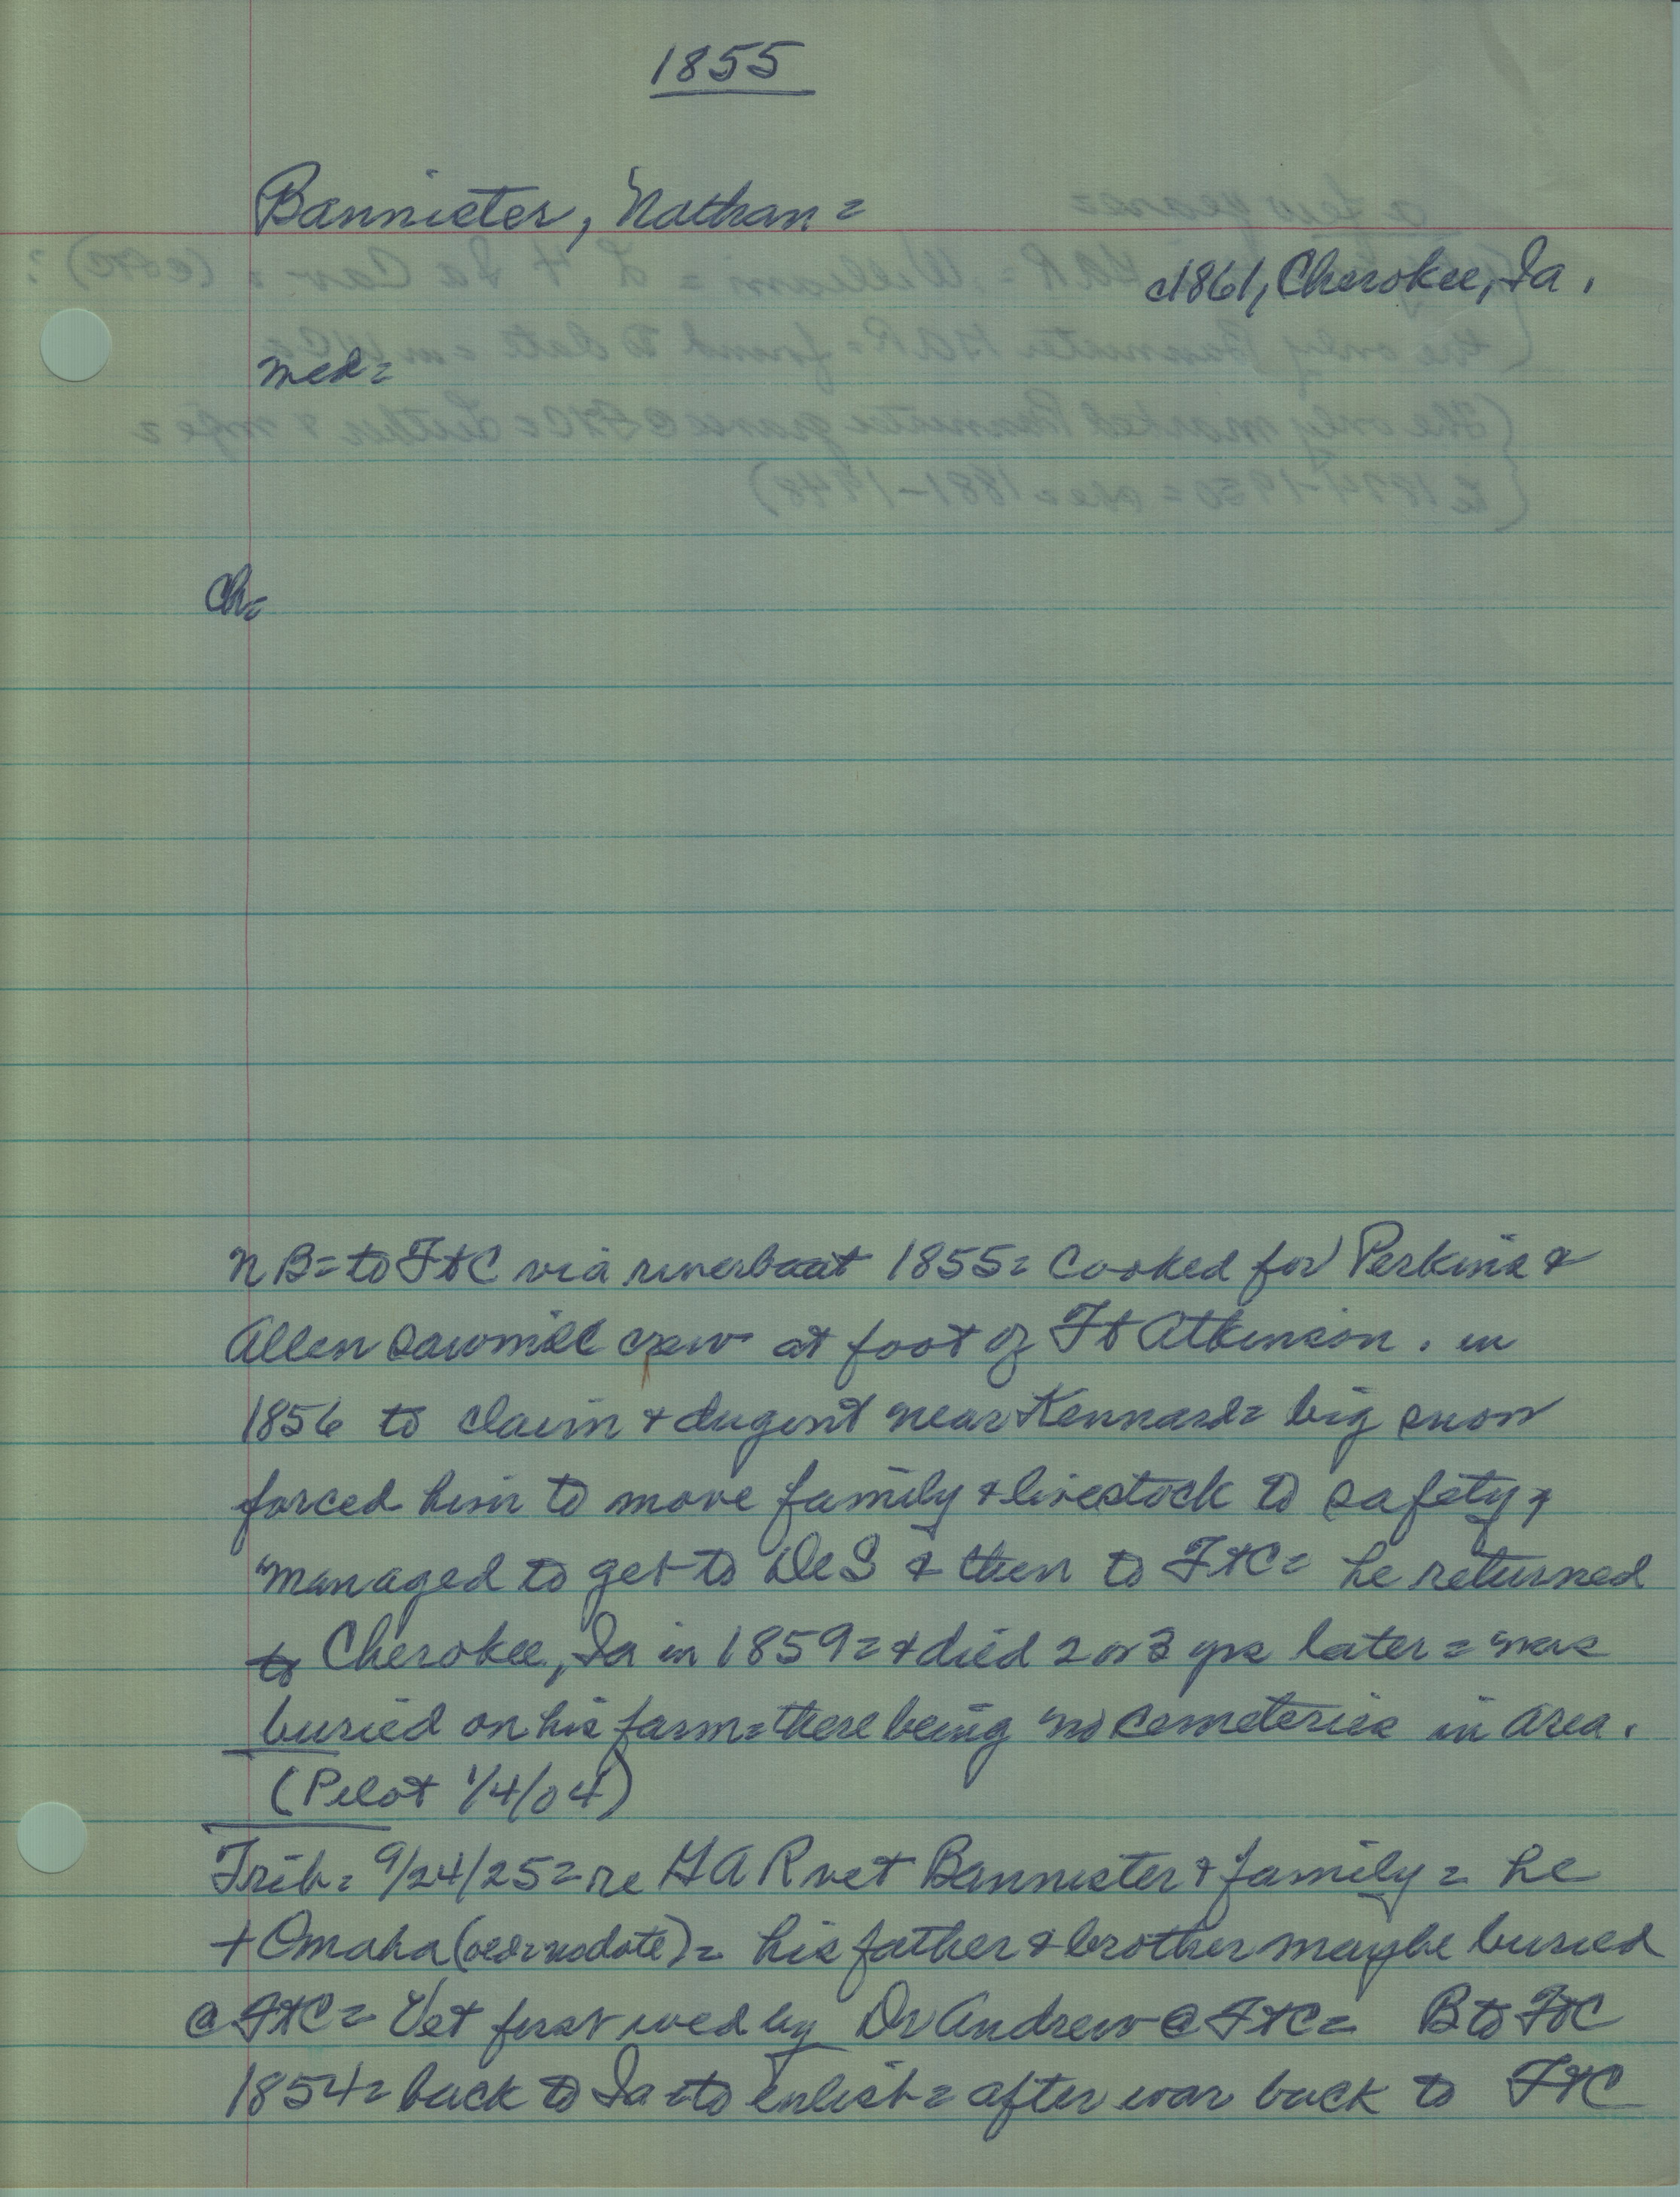 1855
Bannister, Nathan =
c1861, Cherokee, Ia.
med =
Ch =
NB = to FtC via riverboat 1855 = cooked for Perkins &
Allen sawmill crew at foot of Ft Atkinson. in
1856 to claim & dugout near Kennard = big snow
forced him to move family & livestock to safety &
managed to get to DeS & then to FtC = he returned
to Cherokee, Ia in 1859 = & died 2 or 3 yrs later = was
buried on his farm = there being no cemeteries in area.
(Pilot 1/4/04)
Trib = 9/24/25 = re GAR vet Bannister & family = he
+ Omaha ( no date) = his father & brother maybe buried
@ FtC = Vet first wed by Dr Andrew @ FtC = B to FtC
1854 = back to Ia to enlist = after war back to FtC